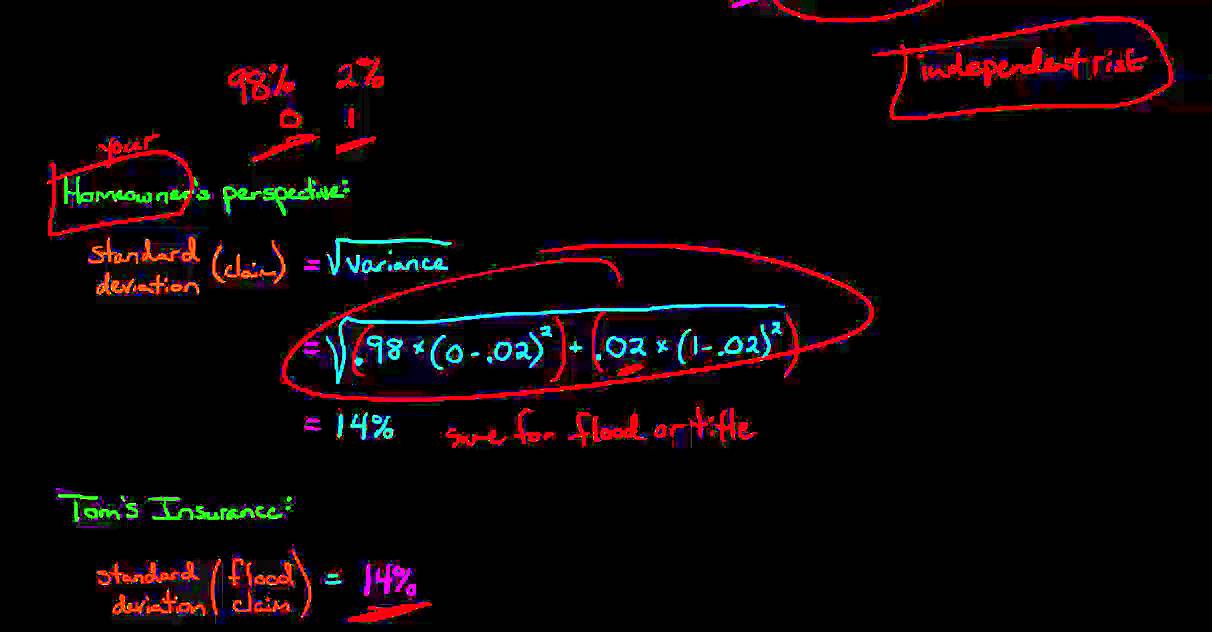 independent risk
98% 2%
0 1
your
Homeowner's perspective:
standard deviation (claim) = √variance
= √(.98 × (0 - .02)²) + (.02 × (1 - .02)²)
= 14% same for flood or title
Tom's Insurance:
standard deviation (flood claim) = 14%